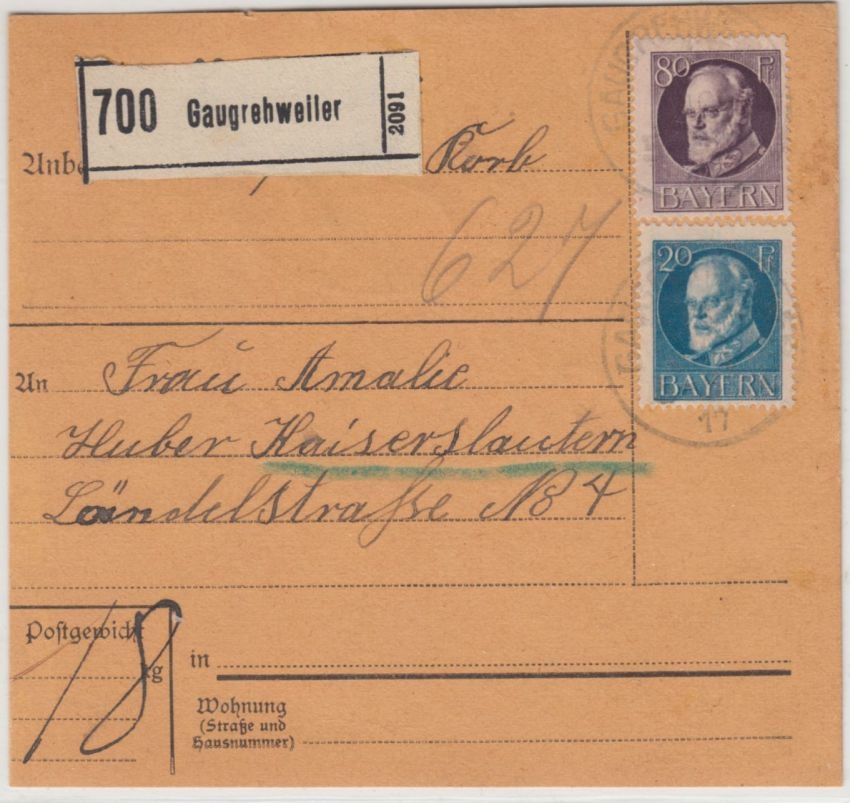 700 Gaugrehweiler 2091
80 Pf
BAYERN
Anbe
Korb
627
20 Pf
BAYERN
17
An Frau Amalie
Huber Kaiserslautern
Ländelstraße No 4
Postgewicht
18 kg
in
Wohnung
(Straße und
Hausnummer)